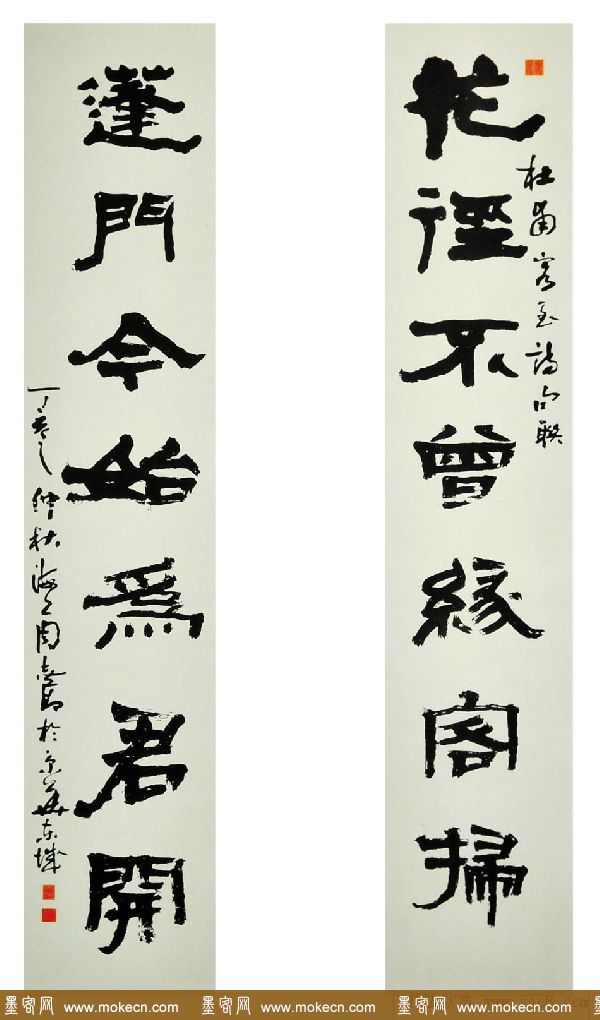 花徑不曾緣客掃
杜甫客至詩句聯
蓬門今始為君開
丁亥之仲秋海上周志高於京華東城
墨客网 www.mokecn.com 墨客网 www.mokecn.com 墨客网 www.mokecn.com 墨客网 www.mokecn.com